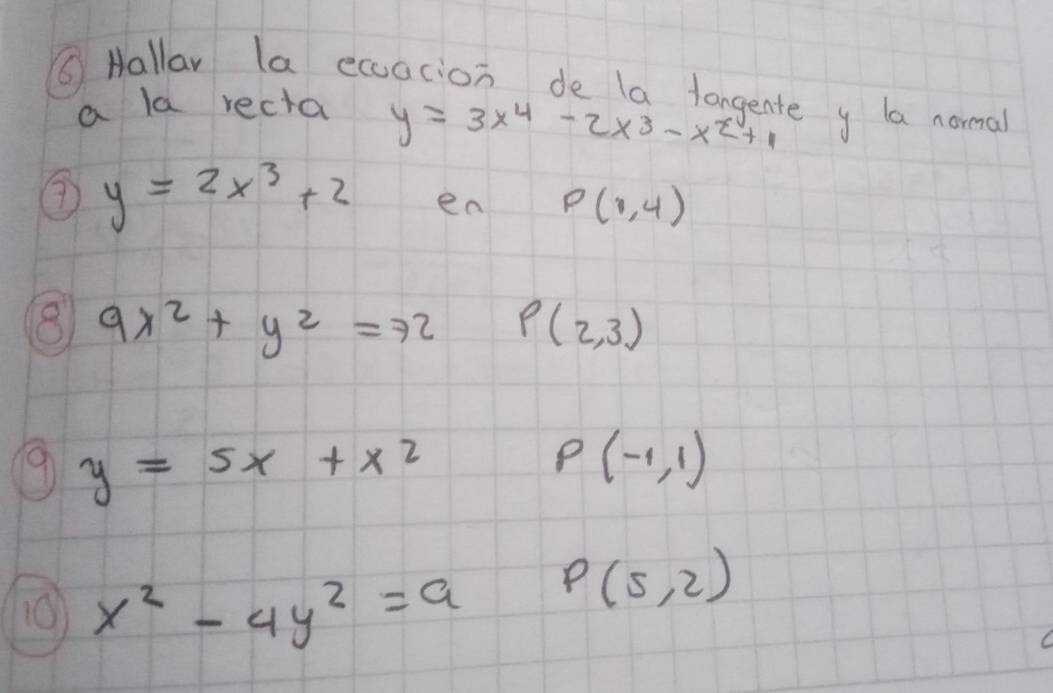 ⑥ Hallar la ecuación de la tangente y la normal
a la recta y = 3x⁴ - 2x³ - x² + 1
⑦ y = 2x³ + 2 en P(1,4)
⑧ 9x² + y² = 72 P(2,3)
⑨ y = 5x + x² P(-1,1)
⑩ x² - 4y² = 9 P(5,2)